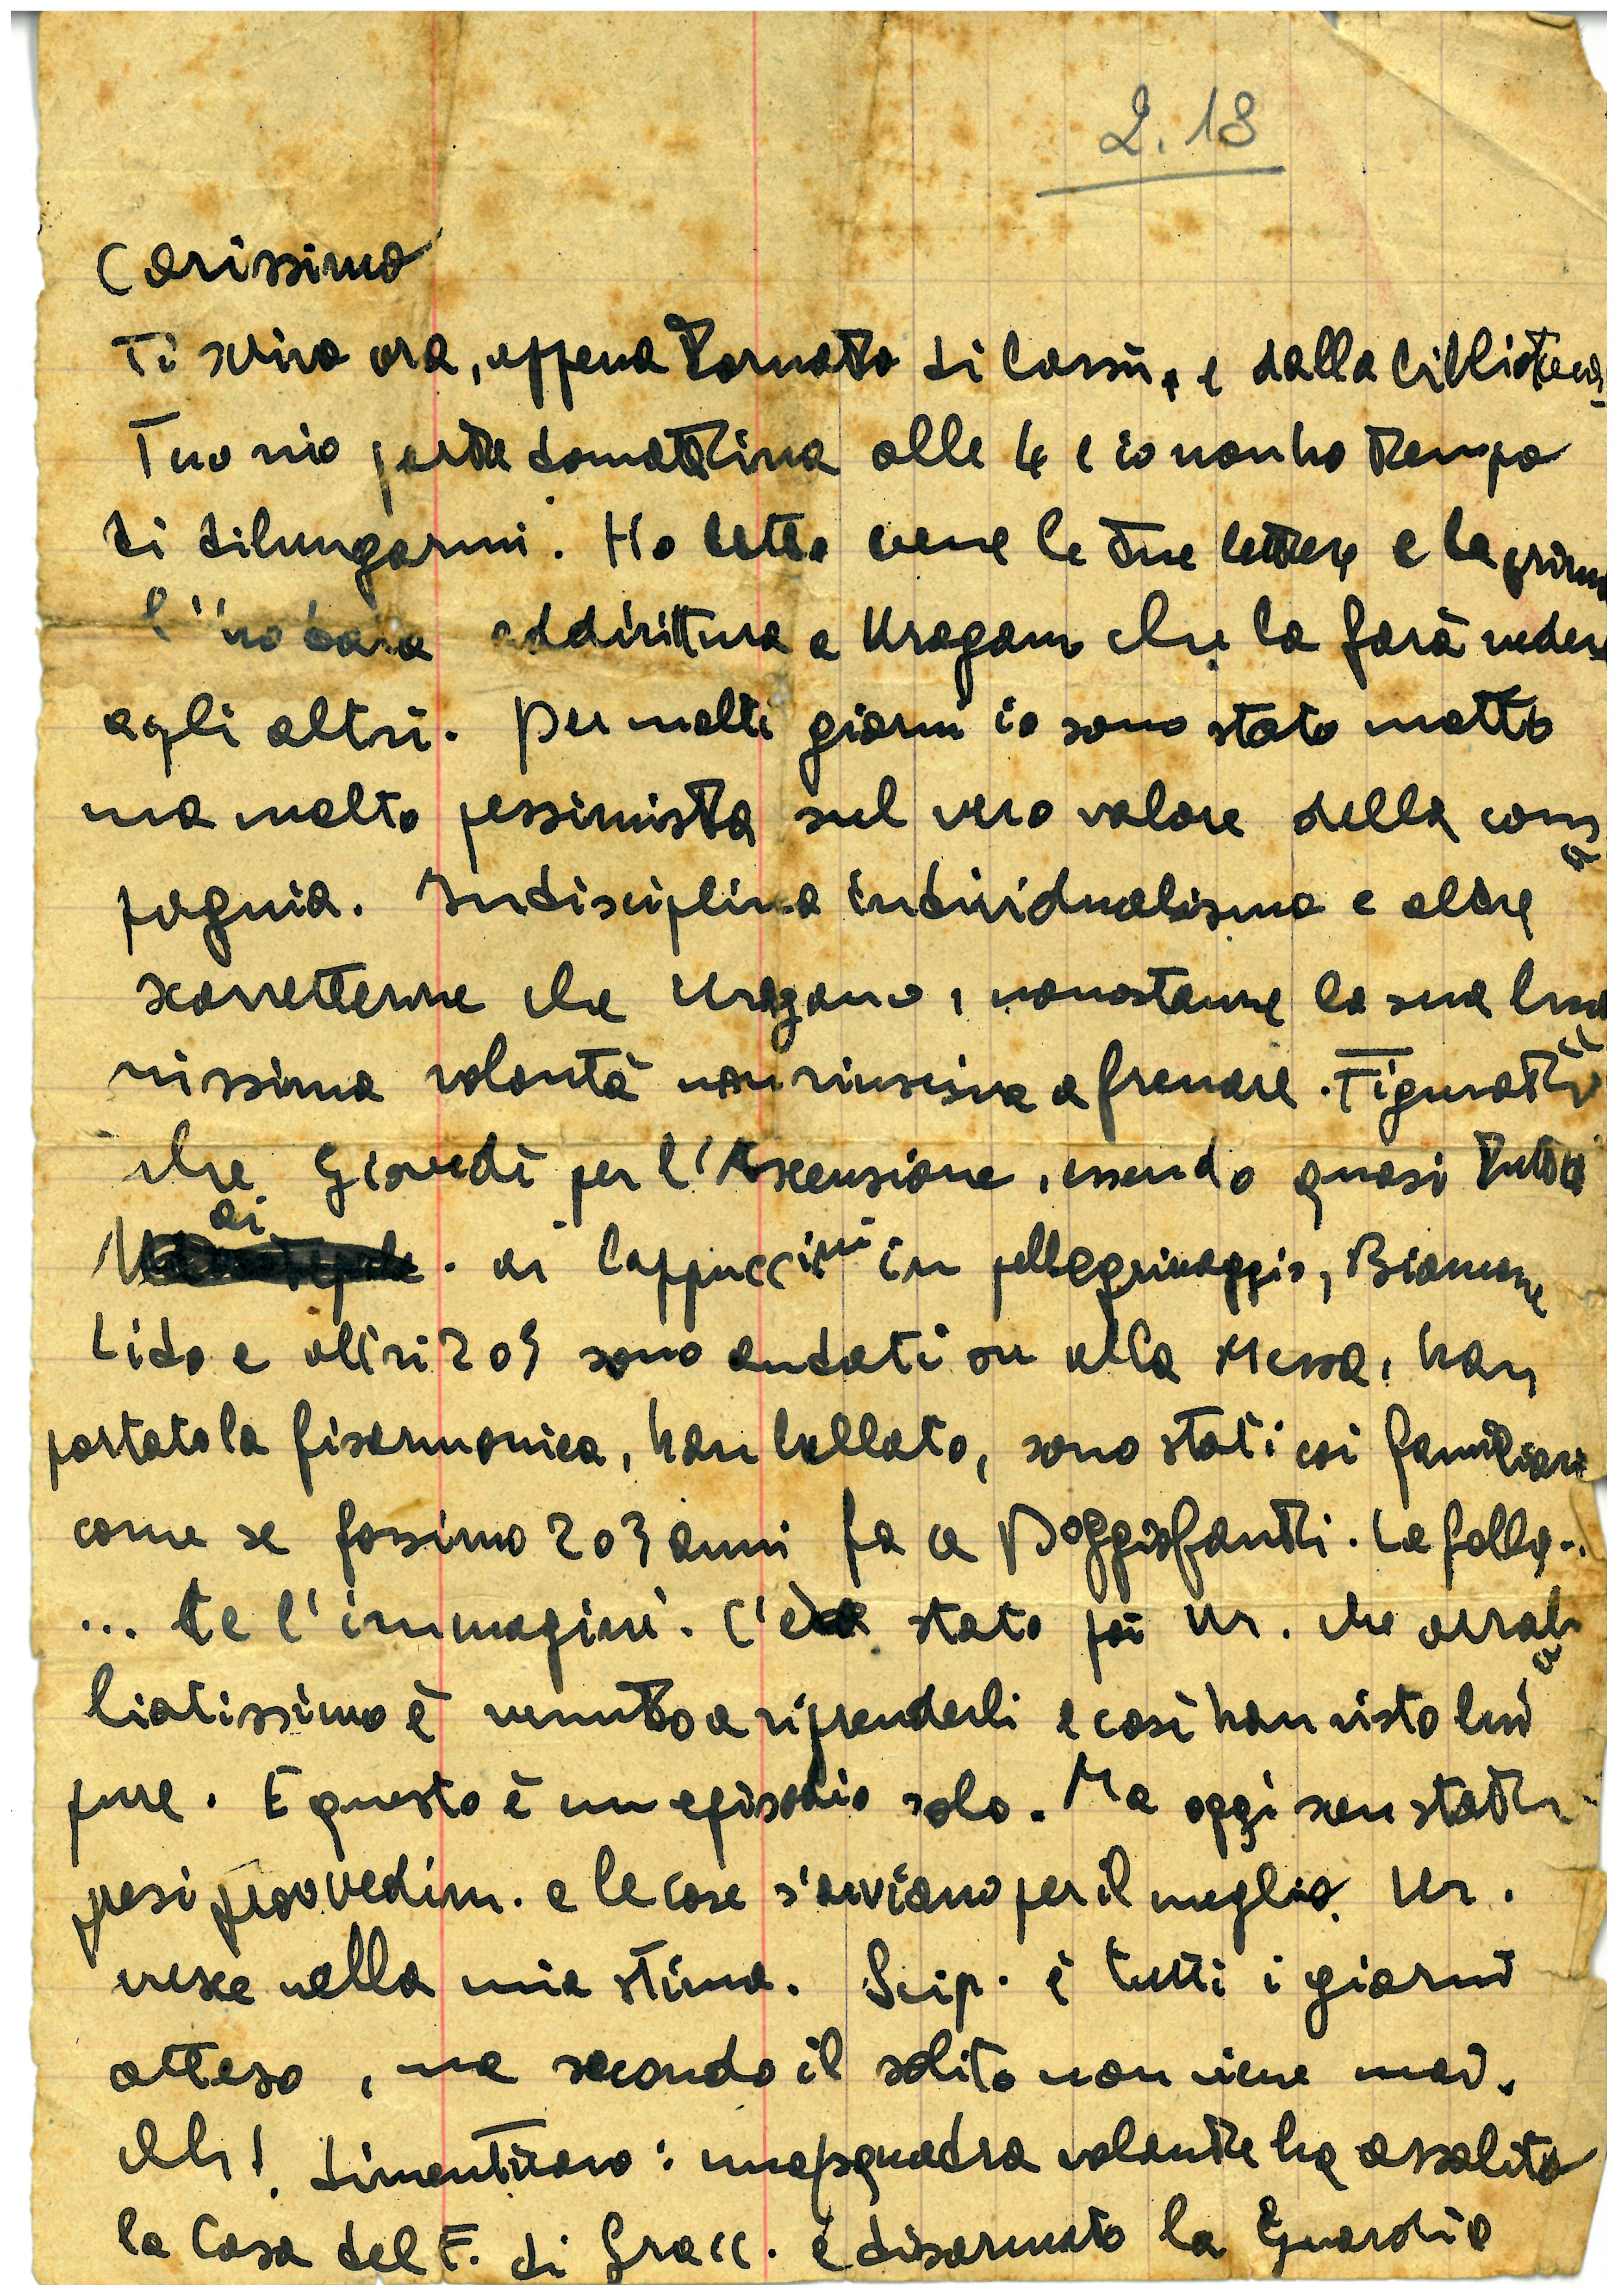 2.18
Carissimo
Ti scrivo ora, appena tornato di lassù, e dalla biblioteca
Tuo zio parte domattina alle 4 e io non ho tempo
di dilungarmi. Ho letto bene le tue lettere e la prima
l'ho data addirittura a Uragano che la farà vedere
agli altri. Per molti giorni io sono stato molto
ma molto pessimista sul vero valore della com=
pagnia. Indisciplina individualismo e altre
scorrettezze che Uragano, nonostante la sua buo
nissima volontà non riusciva a frenare. Figurati
che Giovedì per l'Ascensione, essendo quasi tutti
ai Cappuccini in pellegrinaggio, Biancone
Lido e altri 2 o 3 sono andati su alla Messa, han
portato la fisarmonica, han ballato, sono stati coi familiari
come se fossimo 2 o 3 anni fa a Poggiofanti. La folla..
... te l'immagini. C'è stato poi Ur. che arrab=
biatissimo è venuto a riprenderli e così han visto lui
pure. E questo è un episodio solo. Ma oggi son stati
presi provvedim. e le cose s'avviano per il meglio. Ur.
cresce nella mia stima. Scip. è tutti i giorni
atteso, ma secondo il solito non viene mai.
Ah! dimenticavo: una squadra volante ha assalito
la Casa del F. di Gracc. e disarmato la Guardia